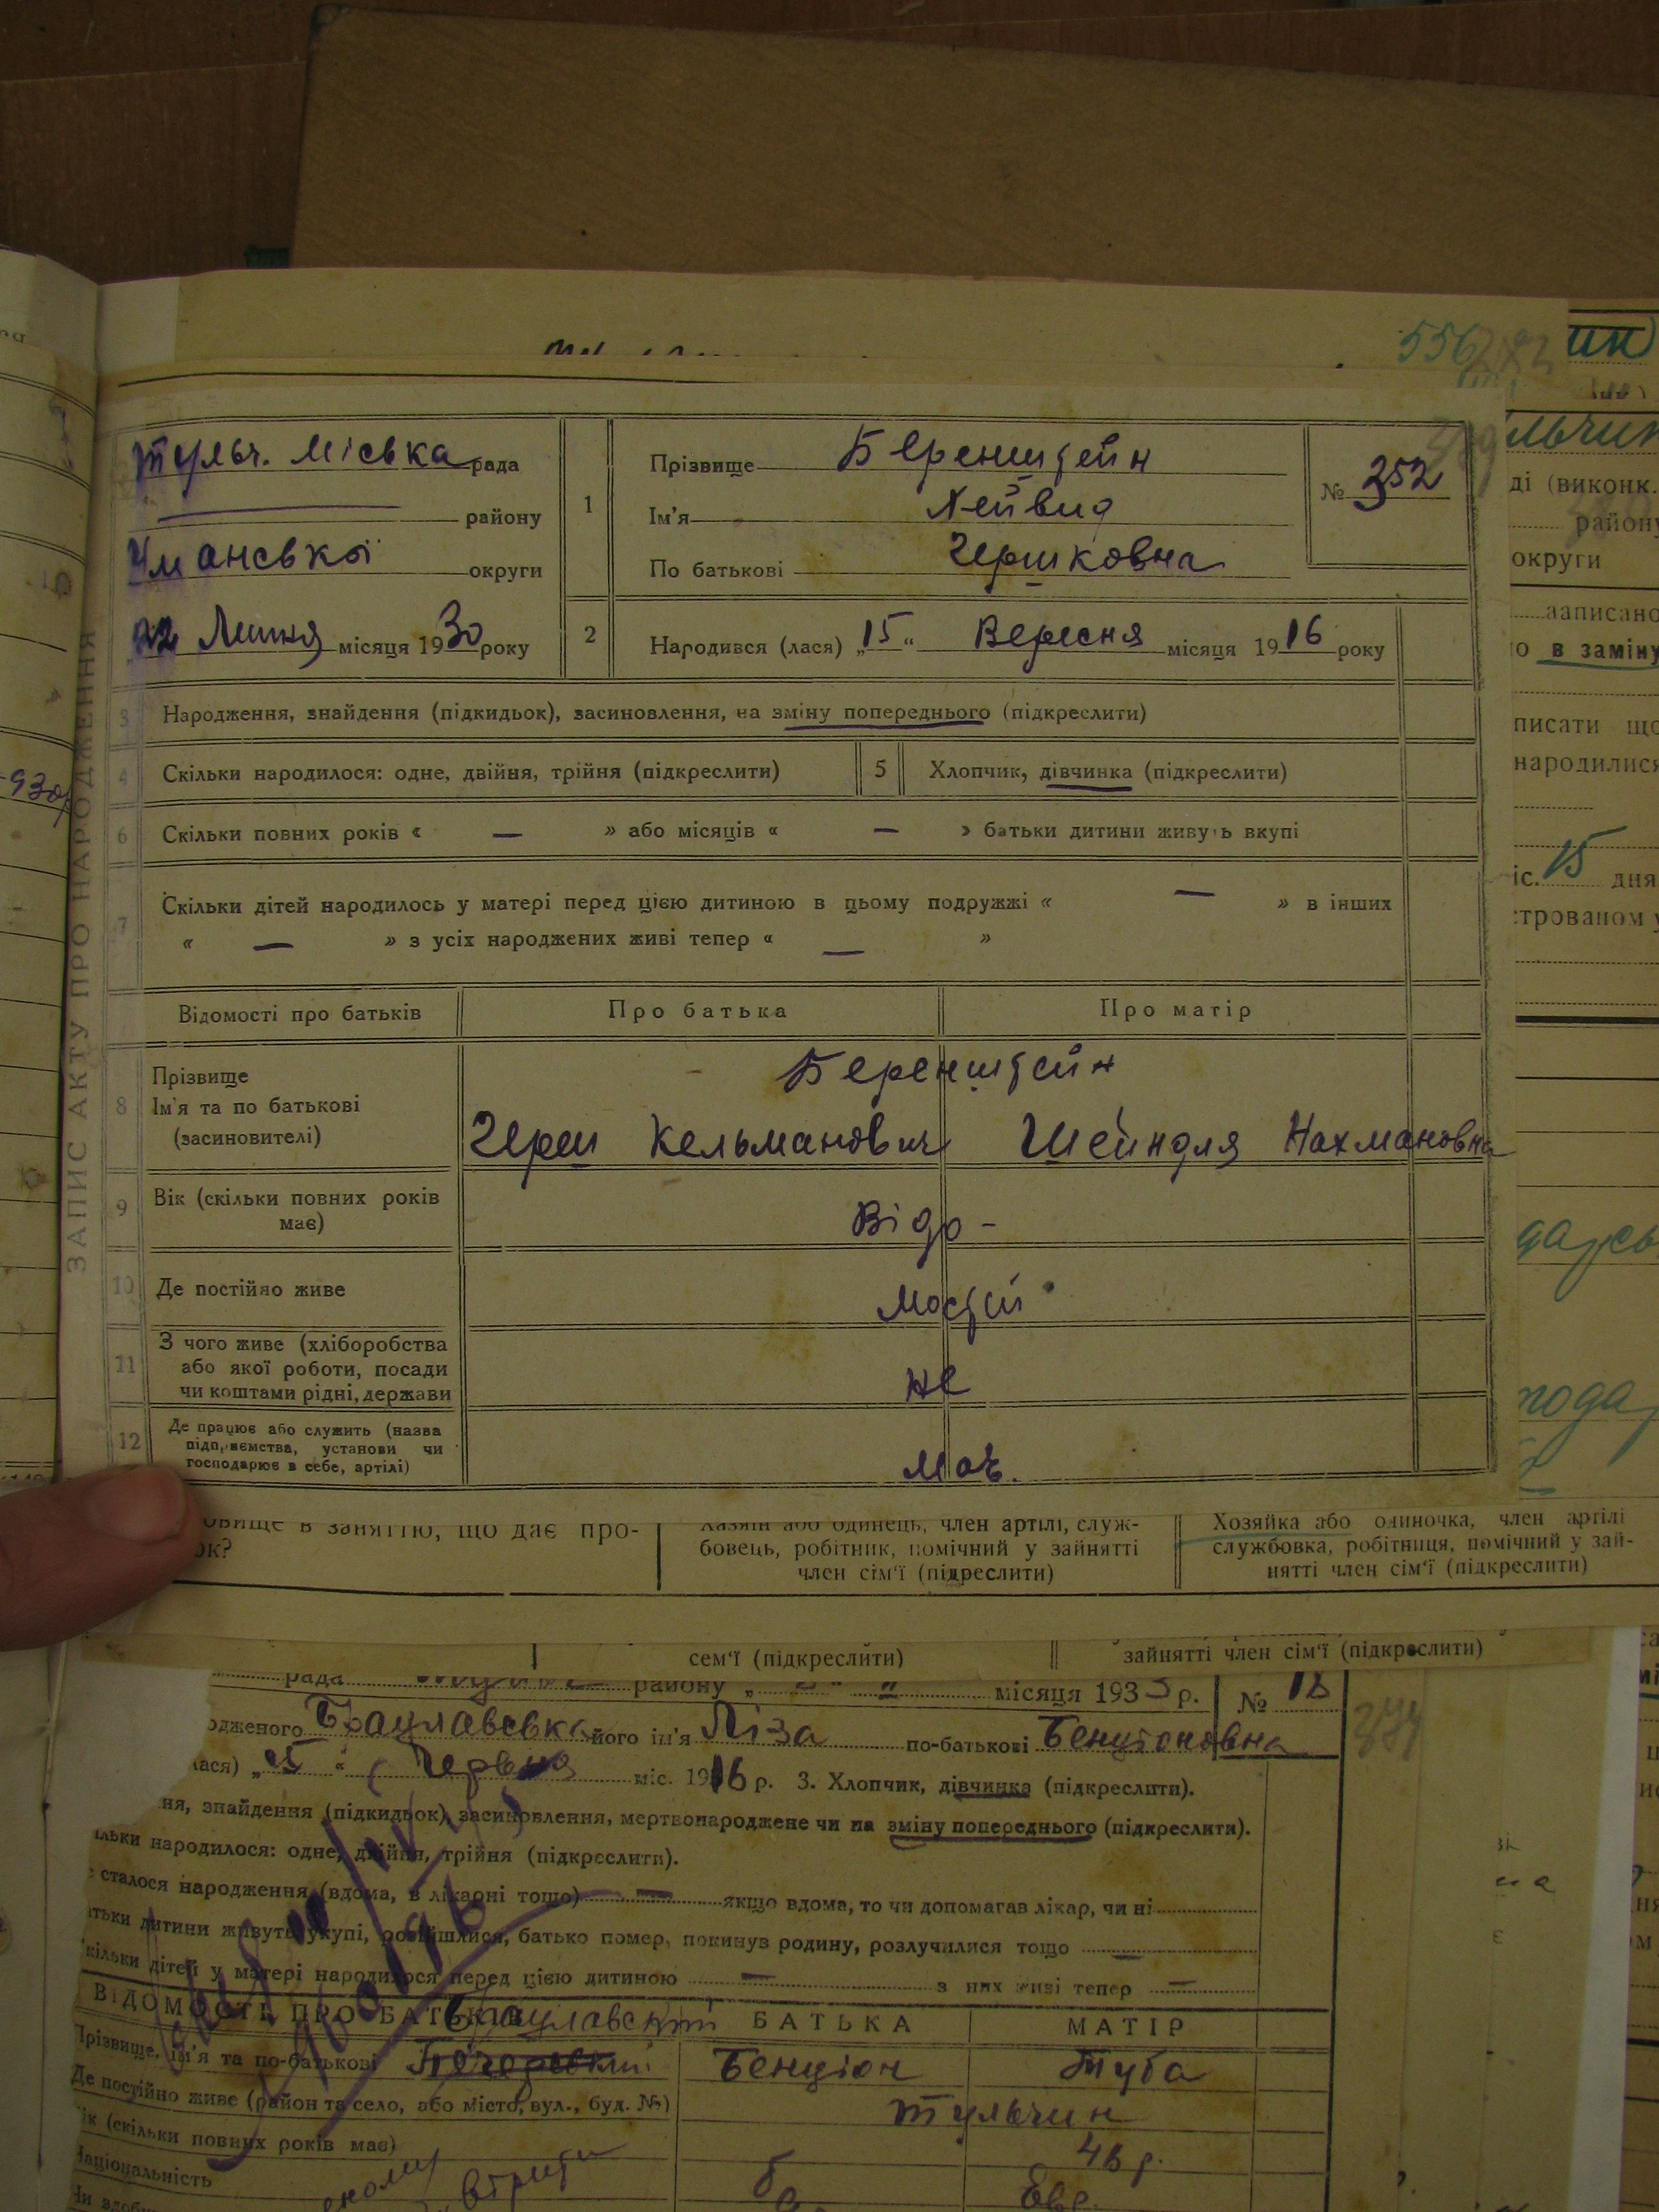 556
ин
Тульч. Міська рада
району
Уманської округи
22 Липня місяця 1930 року
1
Прізвище Беренштейн
Ім'я Хейвид
По батькові Гершковна
№ 352
2
Народився (лася) „15“ Вересня місяця 1916 року
льчин
ді (виконк.
району
округи
записано
о в заміну
писати що
народилися
іс. 15 дня
трованом у
ЗАПИС АКТУ ПРО НАРОДЖЕННЯ
3 Народження, знайдення (підкидьок), засиновлення, на зміну попереднього (підкреслити)
4 Скільки народилося: одне, двійня, трійня (підкреслити)
5 Хлопчик, дівчинка (підкреслити)
6 Скільки повних років « — » або місяців « — » батьки дитини живуть вкупі
7 Скільки дітей народилось у матері перед цією дитиною в цьому подружжі « — » в інших
« — » з усіх народжених живі тепер « — »
Відомості про батьків
Про батька
Про матір
8 Прізвище
Ім'я та по батькові
(засиновителі)
Беренштейн
Герш Кельманович
Шейндля Нахмановна
9 Вік (скільки повних років
має)
Відо-
10 Де постійно живе
мостей
11 З чого живе (хліборобства
або якої роботи, посади
чи коштами рідні, держави
не
12 Де працює або служить (назва
підприємства, установи чи
господарює в себе, артілі)
має.
овище в заняттю, що дає про-
ок?
Хазяїн або одинець, член артілі, служ-
бовець, робітник, помічний у зайнятті
член сім'ї (підкреслити)
Хозяйка або одиночка, член артілі
службовка, робітниця, помічний у зай-
нятті член сім'ї (підкреслити)
сем'ї (підкреслити)
зайнятті член сім'ї (підкреслити)
рада району місяця 1933 р. № 18
одженого Брацлавська його ім'я Ліза по-батькові Бенціоновна
лася) „5“ Червня міс. 1916 р. 3. Хлопчик, дівчинка (підкреслити).
ня, знайдення (підкидьок), засиновлення, мертвонароджене чи на зміну попереднього (підкреслити).
льки народилося: одне, двійня, трійня (підкреслити).
сталося народження (вдома, в лікарні тощо) — якщо вдома, то чи допомагав лікар, чи ні
атьки дитини живуть укупі, розійшлися, батько помер, покинув родину, розлучилися тощо —
кільки дітей у матері народилося перед цією дитиною — з них живі тепер —
ВІДОМОСТІ ПРО БАТЬКІВ
Брацлавський
БАТЬКА
МАТІР
Прізвище, ім'я та по-батькові
Бенціон
Туба
Де постійно живе (район та село, або місто, вул., буд. №)
Тульчин
Вік (скільки повних років має)
48 р.
Національність
Євр.